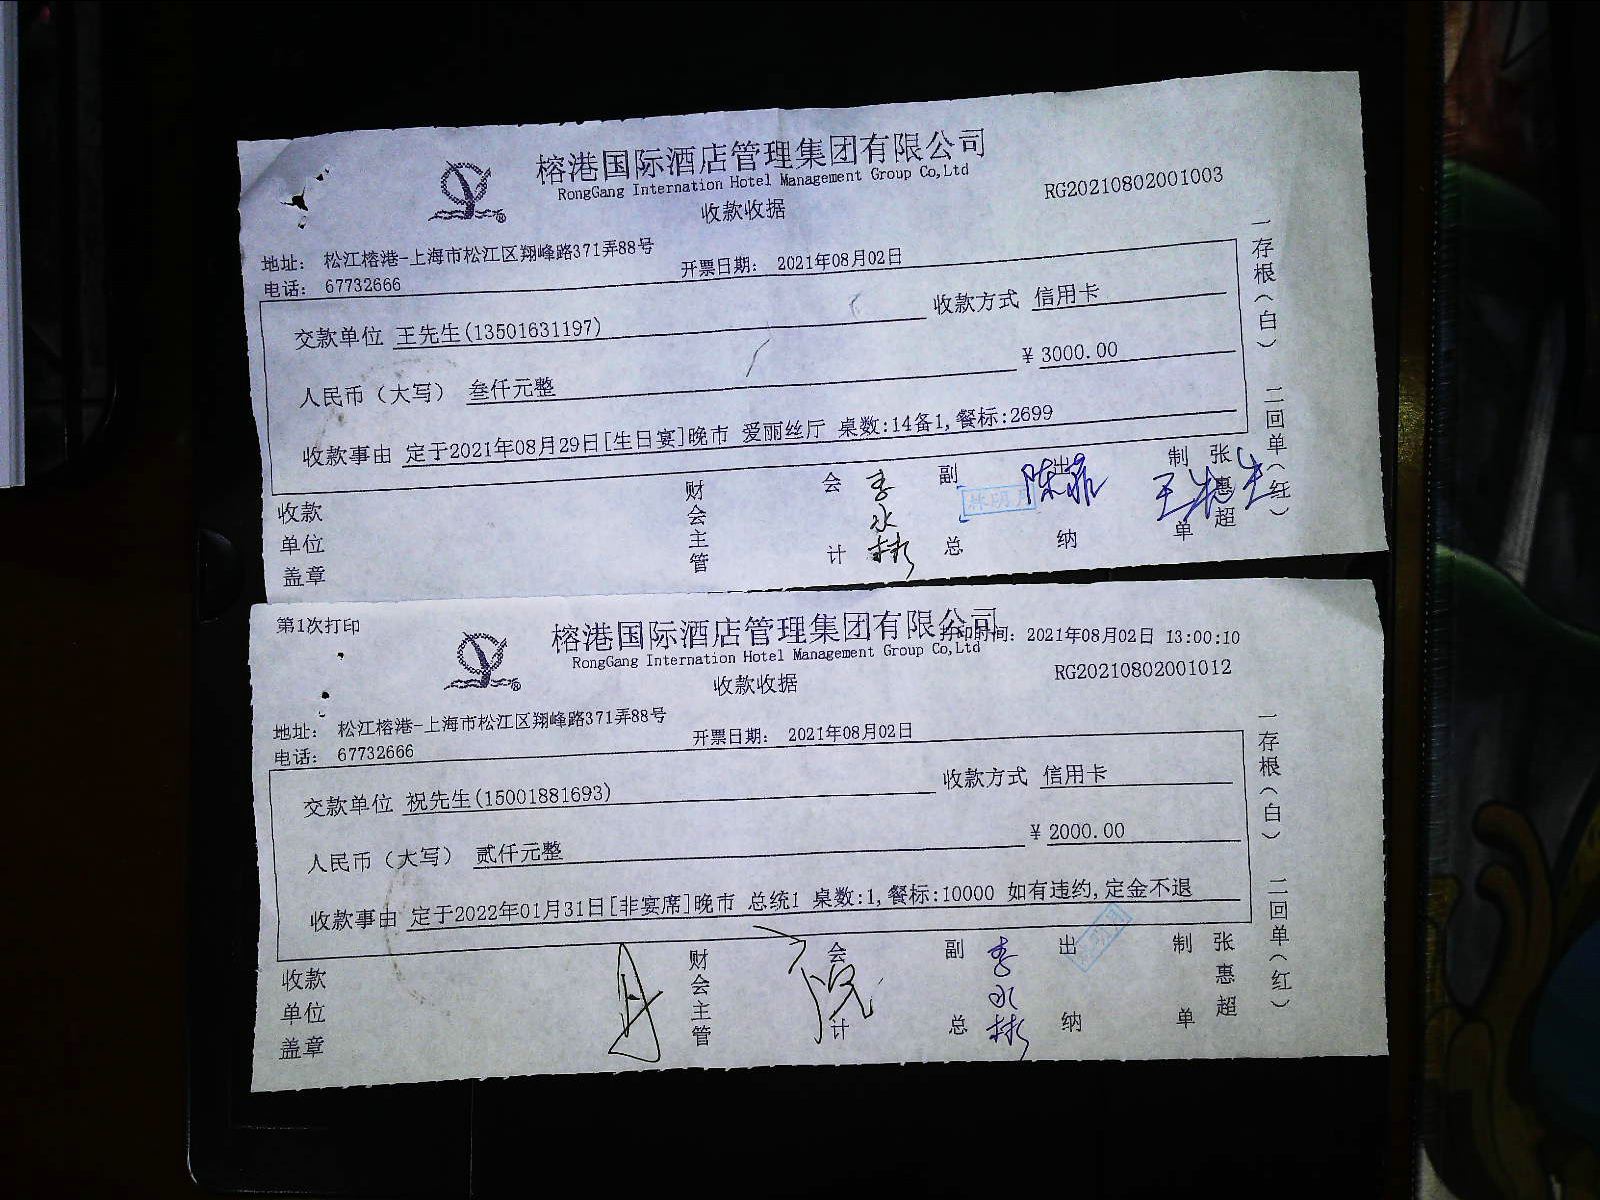 榕港国际酒店管理集团有限公司
RongGang Internation Hotel Management Group Co,Ltd
收款收据
RG20210802001003
地址： 松江榕港-上海市松江区翔峰路371弄88号
电话： 67732666
开票日期： 2021年08月02日
交款单位 王先生(13501631197)
收款方式 信用卡
人民币（大写） 叁仟元整
¥ 3000.00
收款事由 定于2021年08月29日[生日宴]晚市 爱丽丝厅 桌数:14备1,餐标:2699
收款单位盖章
财会主管
会计 李永彬
副总
出纳 陈菲
制单 张惠超
王先生
一存根（白） 二回单（红）
第1次打印
打印时间： 2021年08月02日 13:00:10
榕港国际酒店管理集团有限公司
RongGang Internation Hotel Management Group Co,Ltd
收款收据
RG20210802001012
地址： 松江榕港-上海市松江区翔峰路371弄88号
电话： 67732666
开票日期： 2021年08月02日
交款单位 祝先生(15001881693)
收款方式 信用卡
人民币（大写） 贰仟元整
¥ 2000.00
收款事由 定于2022年01月31日[非宴席]晚市 总统1 桌数:1,餐标:10000 如有违约,定金不退
收款单位盖章
财会主管
会计
副总 李永彬
出纳
制单 张惠超
一存根（白） 二回单（红）